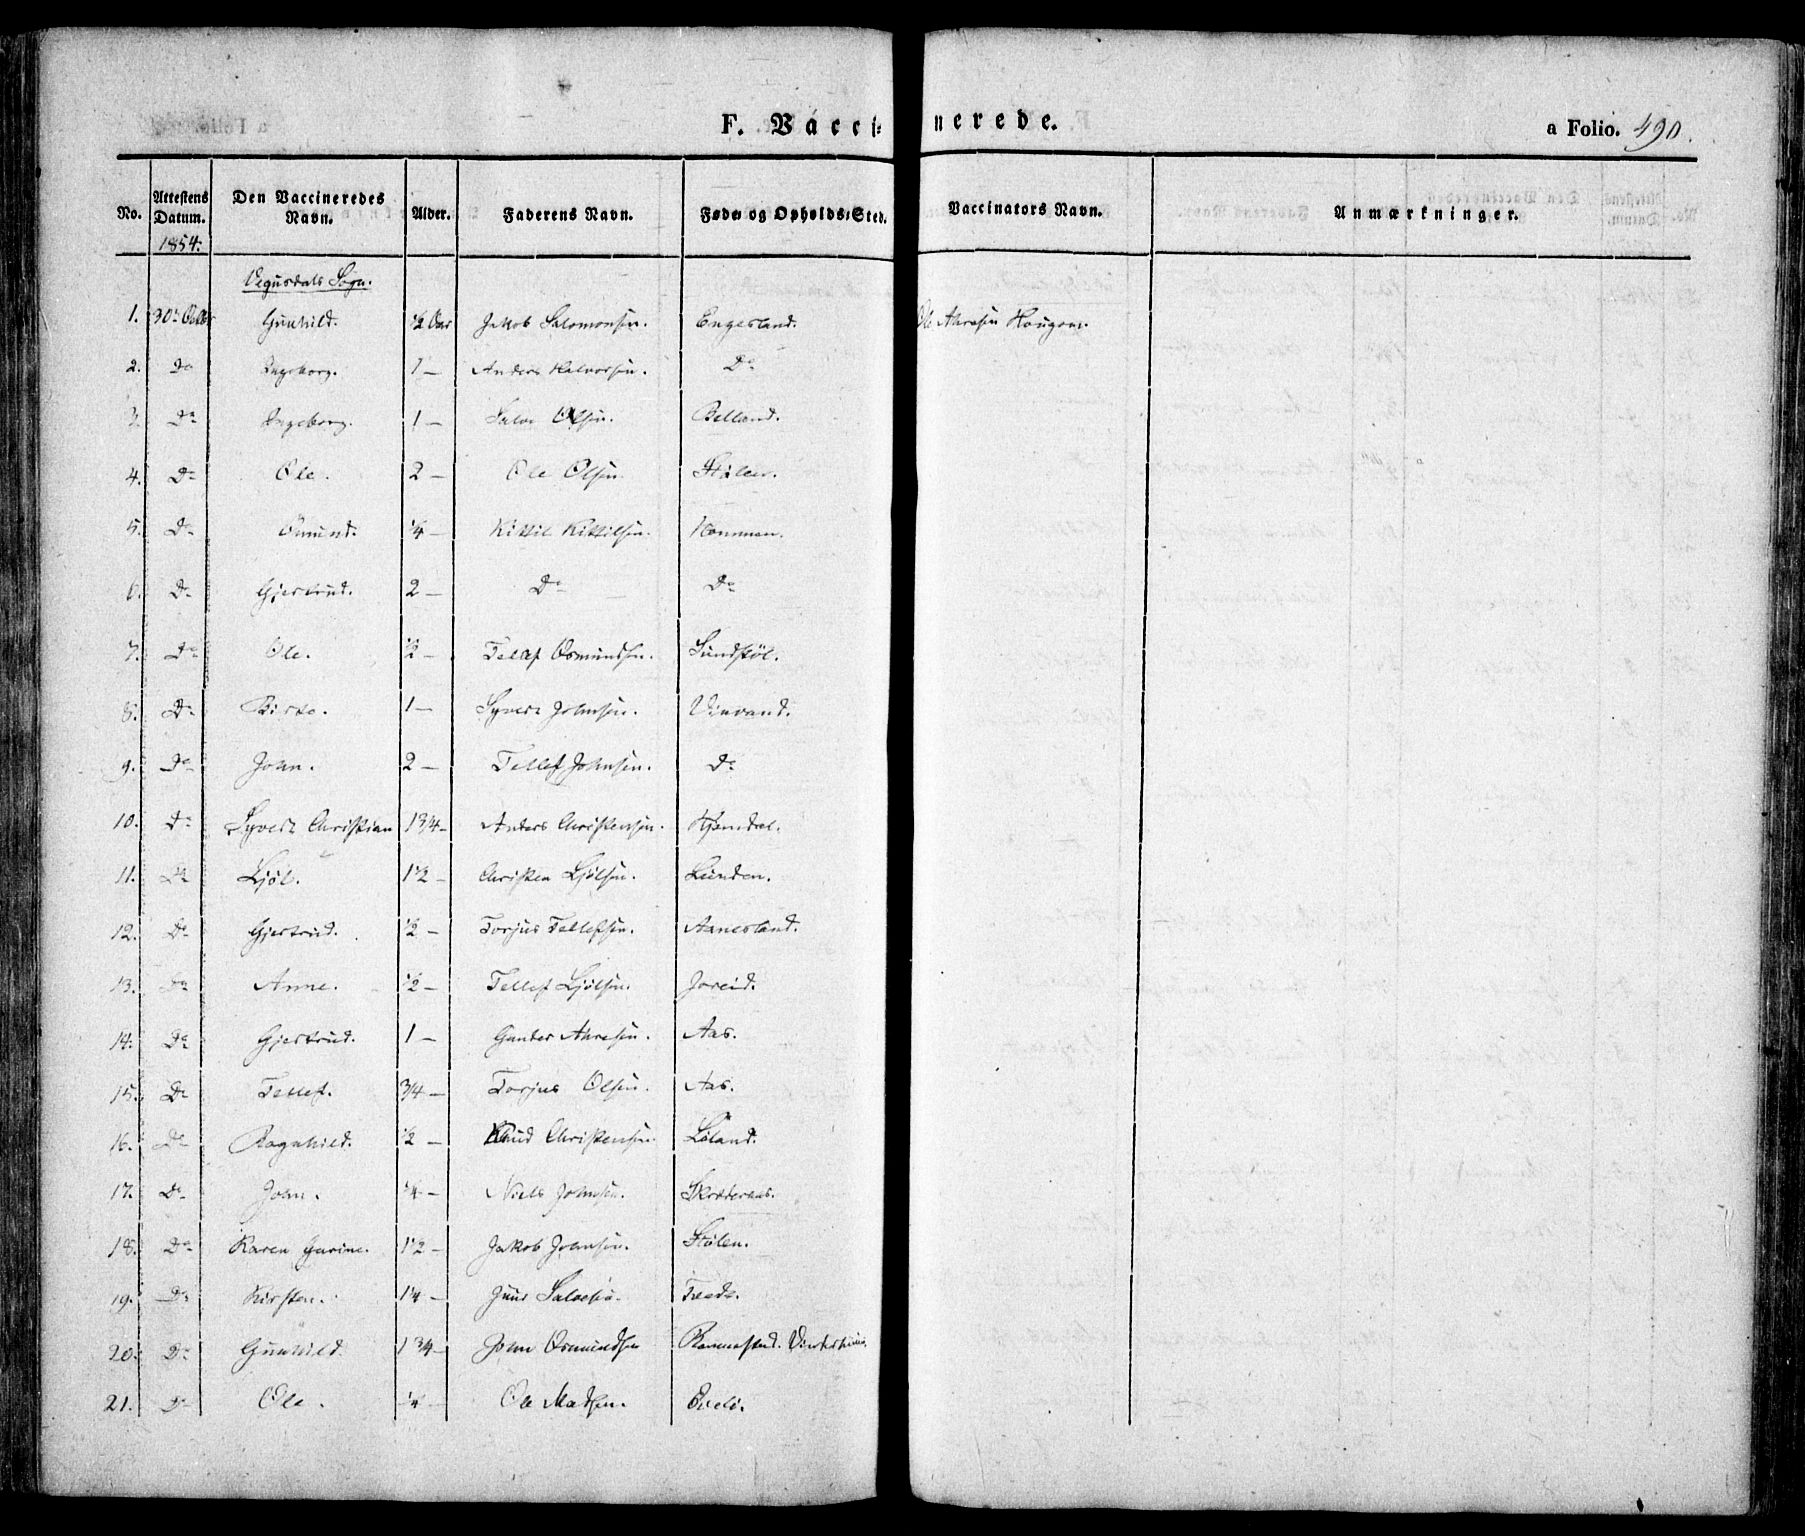 F. Vaccinerede.
a Folio. 490.
No. Attestens Datum. Den Vaccineredes Navn. Alder. Faderens Navn. Føde og Opholds-Sted. Vaccinators Navn. Anmærkninger.
1854.
Vegusdals Sogn.
1. 30te Octbr Gunhild. 1/2 Aar Jakob Salomonsen. Engesland. Ole Aanesen Hougom.
2. Do Ingeborg. 1 — Anders Halvorsen. Do
3. Do Ingeborg. 1 — Salve Olsen. Belland.
4. Do Ole. 2 — Ole Olsen Stølen.
5. Do Omund. 1/4 — Kittil Kittilsen. Hommen.
6. Do Gjertrud. 2 — Do Do
7. Do Ole. 1/2 — Tellef Osmundsen. Sundstøl.
8. Do Birte. 1 — Syvert Johnsen. Vinvand.
9. Do John. 2 — Tellef Johnsen. Do
10. Do Syvert Christian 1 3/4 — Anders Christensen.
11. Do Ljøl. 1 1/2 — Christen Ljølsen. Lunden.
12. Do Gjertrud. 1/2 — Torjus Tellefsen. Aanesland.
13. Do Anne. 1/2 — Tellef Ljølsen. Joreid.
14. Do Gjertrud. 1 — Gunder Aanesen. Aas.
15. Do Tellef. 3/4 — Torjus Olsen. Aas.
16. Do Ragnhild. 1/2 — Knud Christensen. Løland.
17. Do John. 1/4 — Niels Johnsen.
18. Do Karen Gurine. 1 1/2 — Jakob Johnsen. Stølen.
19. Do Kirsten. 1 1/4 — Salvesen. Tvedt.
20. Do Gunhild. 1 3/4 — John Osmundsen
21. Do Ole. 1/4 — Ole Madsen. Eveli.